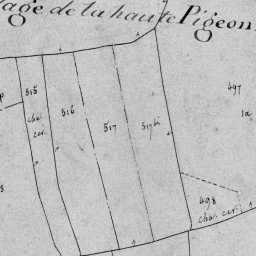 age de la haute Pigeon
515
cha.
cer.
516
517
517 bis
497
1a
498
char. cer.